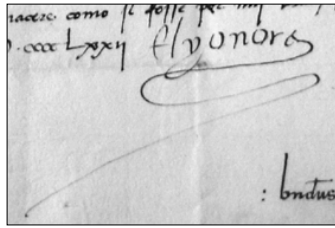 piacere como se fosse
cccc Lxxxii Elyonora
: bndus